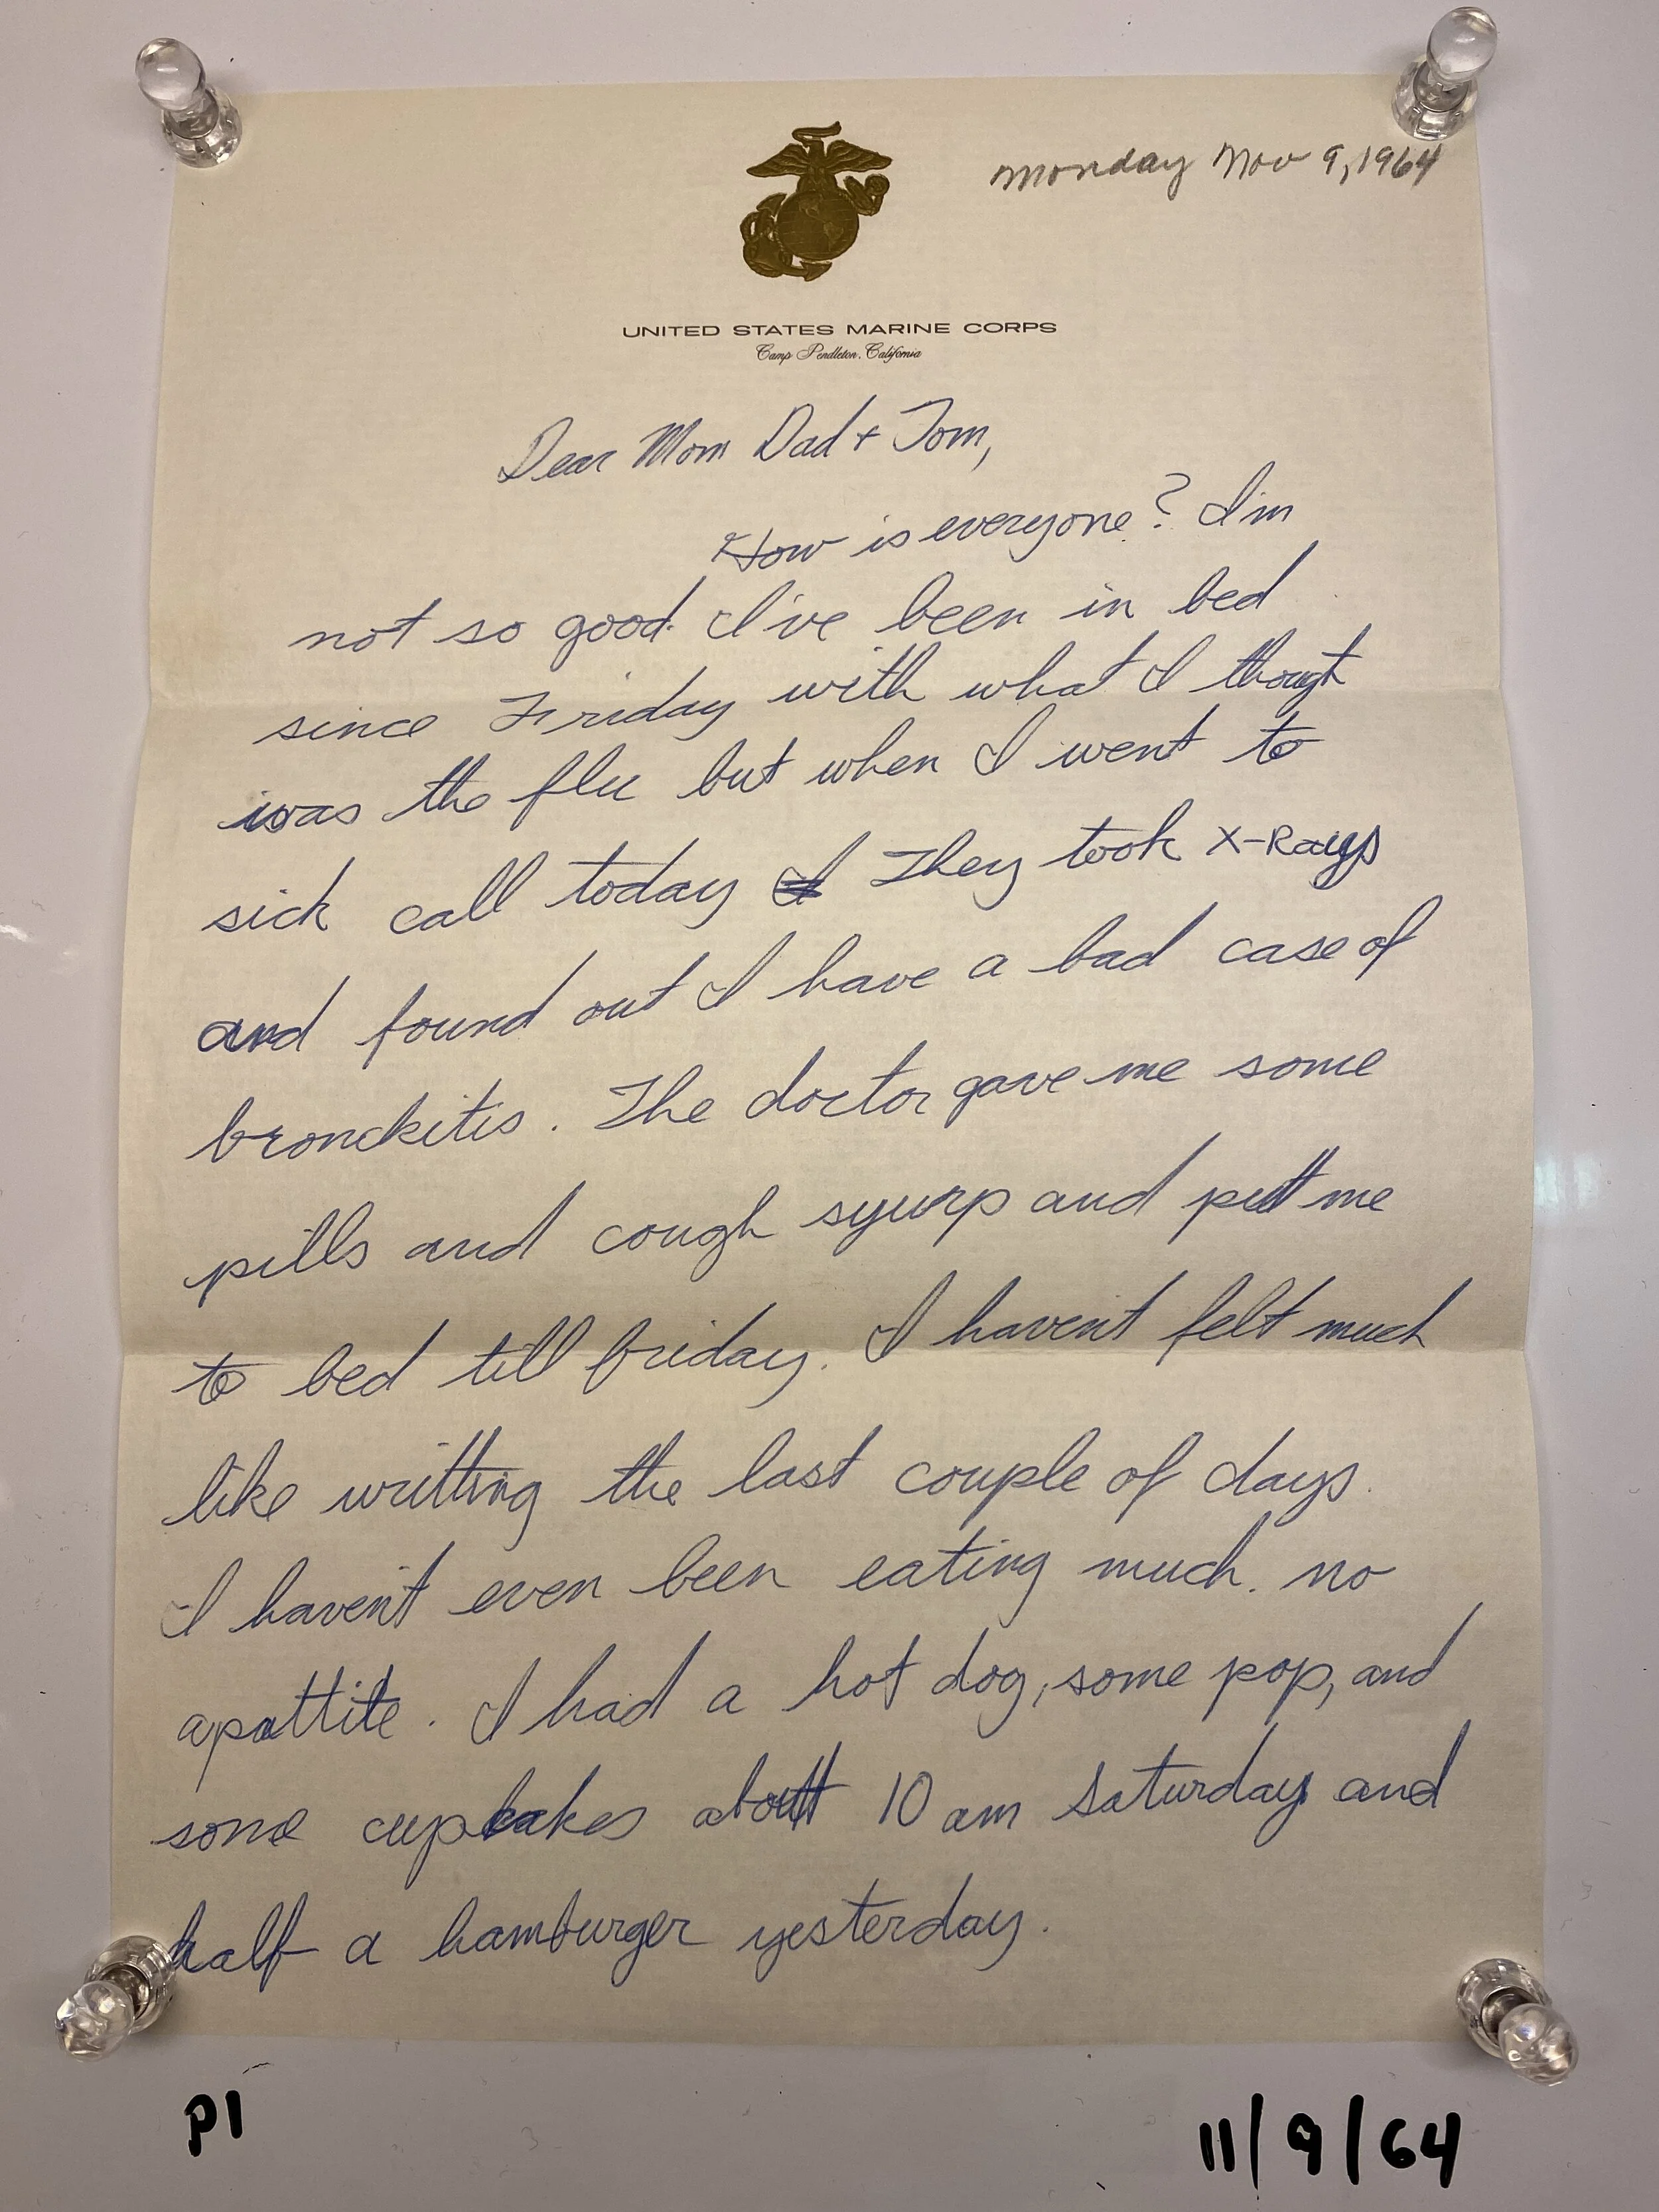 Monday Nov 9, 1964
UNITED STATES MARINE CORPS
Camp Pendleton, California
Dear Mom Dad + Tom,
How is everyone? I'm
not so good. I've been in bed
since Friday with what I thought
was the flu but when I went to
sick call today They took X-Rays
and found out I have a bad case of
bronckitis. The doctor gave me some
pills and cough syurp and put me
to bed till friday. I haven't felt much
like writting the last couple of days.
I haven't even been eating much. no
apattite. I had a hot dog, some pop, and
some cupcakes about 10 am Saturday and
half a hamburger yesterday.
P1
11/9/64